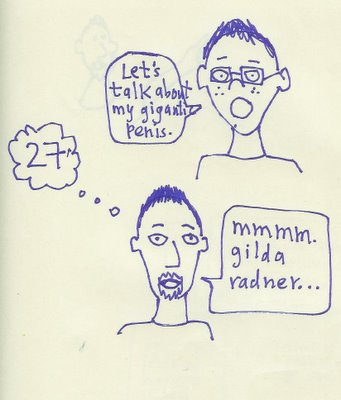 Let's
talk about
my gigantic
penis.
27"
mmmm.
gilda
radner...